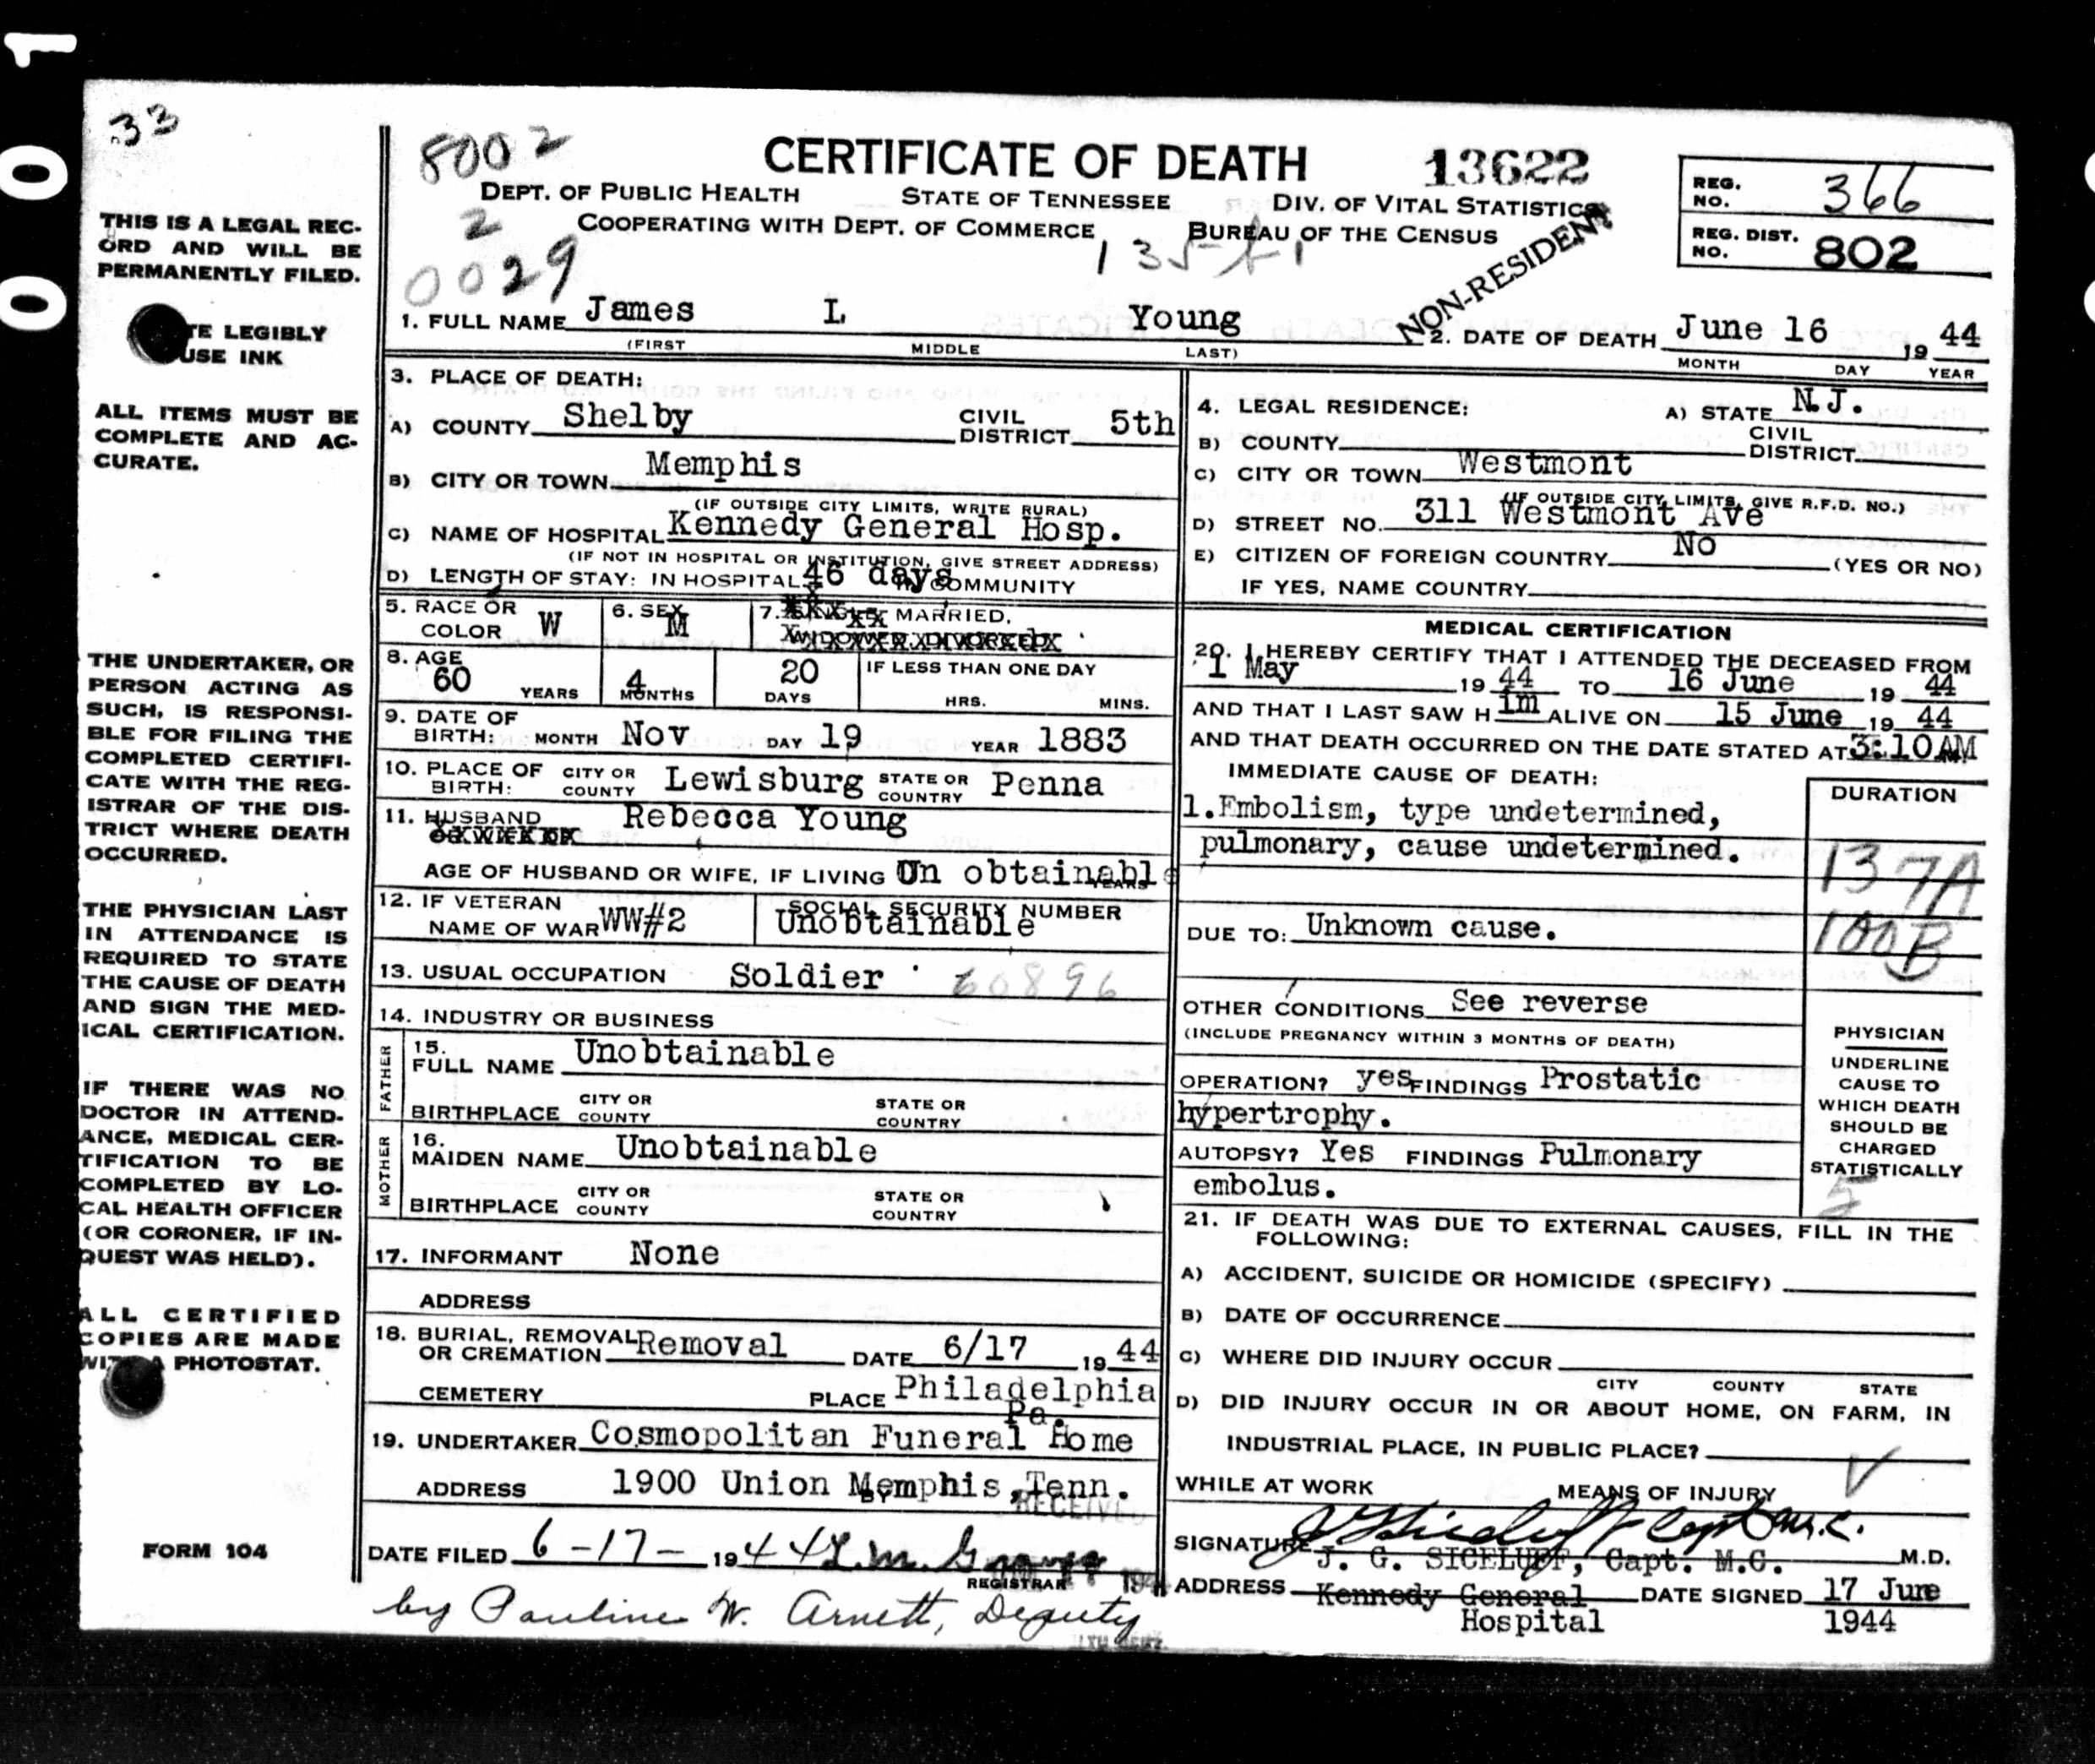 001
33
8002
CERTIFICATE OF DEATH 13622
DEPT. OF PUBLIC HEALTH STATE OF TENNESSEE DIV. OF VITAL STATISTICS
2 COOPERATING WITH DEPT. OF COMMERCE BUREAU OF THE CENSUS
0029
NON-RESIDENT
REG. NO. 366
REG. DIST. NO. 802
THIS IS A LEGAL REC-
ORD AND WILL BE
PERMANENTLY FILED.
TE LEGIBLY
USE INK
ALL ITEMS MUST BE
COMPLETE AND AC-
CURATE.
THE UNDERTAKER, OR
PERSON ACTING AS
SUCH, IS RESPONSI-
BLE FOR FILING THE
COMPLETED CERTIFI-
CATE WITH THE REG-
ISTRAR OF THE DIS-
TRICT WHERE DEATH
OCCURRED.
THE PHYSICIAN LAST
IN ATTENDANCE IS
REQUIRED TO STATE
THE CAUSE OF DEATH
AND SIGN THE MED-
ICAL CERTIFICATION.
IF THERE WAS NO
DOCTOR IN ATTEND-
ANCE, MEDICAL CER-
TIFICATION TO BE
COMPLETED BY LO-
CAL HEALTH OFFICER
(OR CORONER, IF IN-
QUEST WAS HELD).
ALL CERTIFIED
COPIES ARE MADE
WITH A PHOTOSTAT.
FORM 104
1. FULL NAME James L Young 2. DATE OF DEATH June 16 19 44
(FIRST MIDDLE LAST) MONTH DAY YEAR
3. PLACE OF DEATH:
A) COUNTY Shelby CIVIL DISTRICT 5th
B) CITY OR TOWN Memphis
(IF OUTSIDE CITY LIMITS, WRITE RURAL)
C) NAME OF HOSPITAL Kennedy General Hosp.
(IF NOT IN HOSPITAL OR INSTITUTION, GIVE STREET ADDRESS)
D) LENGTH OF STAY: IN HOSPITAL 46 days IN COMMUNITY
5. RACE OR COLOR W 6. SEX M 7. SINGLE, MARRIED,
WIDOWED, DIVORCED
8. AGE 60 YEARS 4 MONTHS 20 DAYS IF LESS THAN ONE DAY
HRS. MINS.
9. DATE OF BIRTH: MONTH Nov DAY 19 YEAR 1883
10. PLACE OF BIRTH: CITY OR COUNTY Lewisburg STATE OR COUNTRY Penna
11. HUSBAND OR WIFE OF Rebecca Young
AGE OF HUSBAND OR WIFE, IF LIVING Un obtainable YEARS
12. IF VETERAN NAME OF WAR WW#2 SOCIAL SECURITY NUMBER Unobtainable
13. USUAL OCCUPATION Soldier 60896
14. INDUSTRY OR BUSINESS
FATHER
15. FULL NAME Unobtainable
BIRTHPLACE CITY OR COUNTY STATE OR COUNTRY
MOTHER
16. MAIDEN NAME Unobtainable
BIRTHPLACE CITY OR COUNTY STATE OR COUNTRY
17. INFORMANT None
ADDRESS
18. BURIAL, REMOVAL OR CREMATION Removal DATE 6/17 19 44
CEMETERY PLACE Philadelphia
Pa.
19. UNDERTAKER Cosmopolitan Funeral Home
ADDRESS 1900 Union Memphis, Tenn.
BY
RECEIVED
DATE FILED 6-17- 19 44 L.M. Graves
REGISTRAR
by Pauline W. Arnett, Deputy
4. LEGAL RESIDENCE: A) STATE N.J.
B) COUNTY CIVIL DISTRICT
C) CITY OR TOWN Westmont
(IF OUTSIDE CITY LIMITS, GIVE R.F.D. NO.)
D) STREET NO. 311 Westmont Ave
E) CITIZEN OF FOREIGN COUNTRY No (YES OR NO)
IF YES, NAME COUNTRY
MEDICAL CERTIFICATION
20. I HEREBY CERTIFY THAT I ATTENDED THE DECEASED FROM
1 May 19 44 TO 16 June 19 44
AND THAT I LAST SAW H im ALIVE ON 15 June 19 44
AND THAT DEATH OCCURRED ON THE DATE STATED AT 3:10 AM
IMMEDIATE CAUSE OF DEATH: DURATION
1. Embolism, type undetermined,
pulmonary, cause undetermined.
137A
100B
DUE TO: Unknown cause.
OTHER CONDITIONS See reverse
(INCLUDE PREGNANCY WITHIN 3 MONTHS OF DEATH)
OPERATION? yes FINDINGS Prostatic
hypertrophy.
AUTOPSY? Yes FINDINGS Pulmonary
embolus.
PHYSICIAN
UNDERLINE
CAUSE TO
WHICH DEATH
SHOULD BE
CHARGED
STATISTICALLY
5
21. IF DEATH WAS DUE TO EXTERNAL CAUSES, FILL IN THE
FOLLOWING:
A) ACCIDENT, SUICIDE OR HOMICIDE (SPECIFY)
B) DATE OF OCCURRENCE
C) WHERE DID INJURY OCCUR
CITY COUNTY STATE
D) DID INJURY OCCUR IN OR ABOUT HOME, ON FARM, IN
INDUSTRIAL PLACE, IN PUBLIC PLACE?
WHILE AT WORK MEANS OF INJURY
SIGNATURE J G Siceluff Capt M.C.
J. G. SICELUFF, Capt. M.C. M.D.
ADDRESS Kennedy General DATE SIGNED 17 June
Hospital 1944